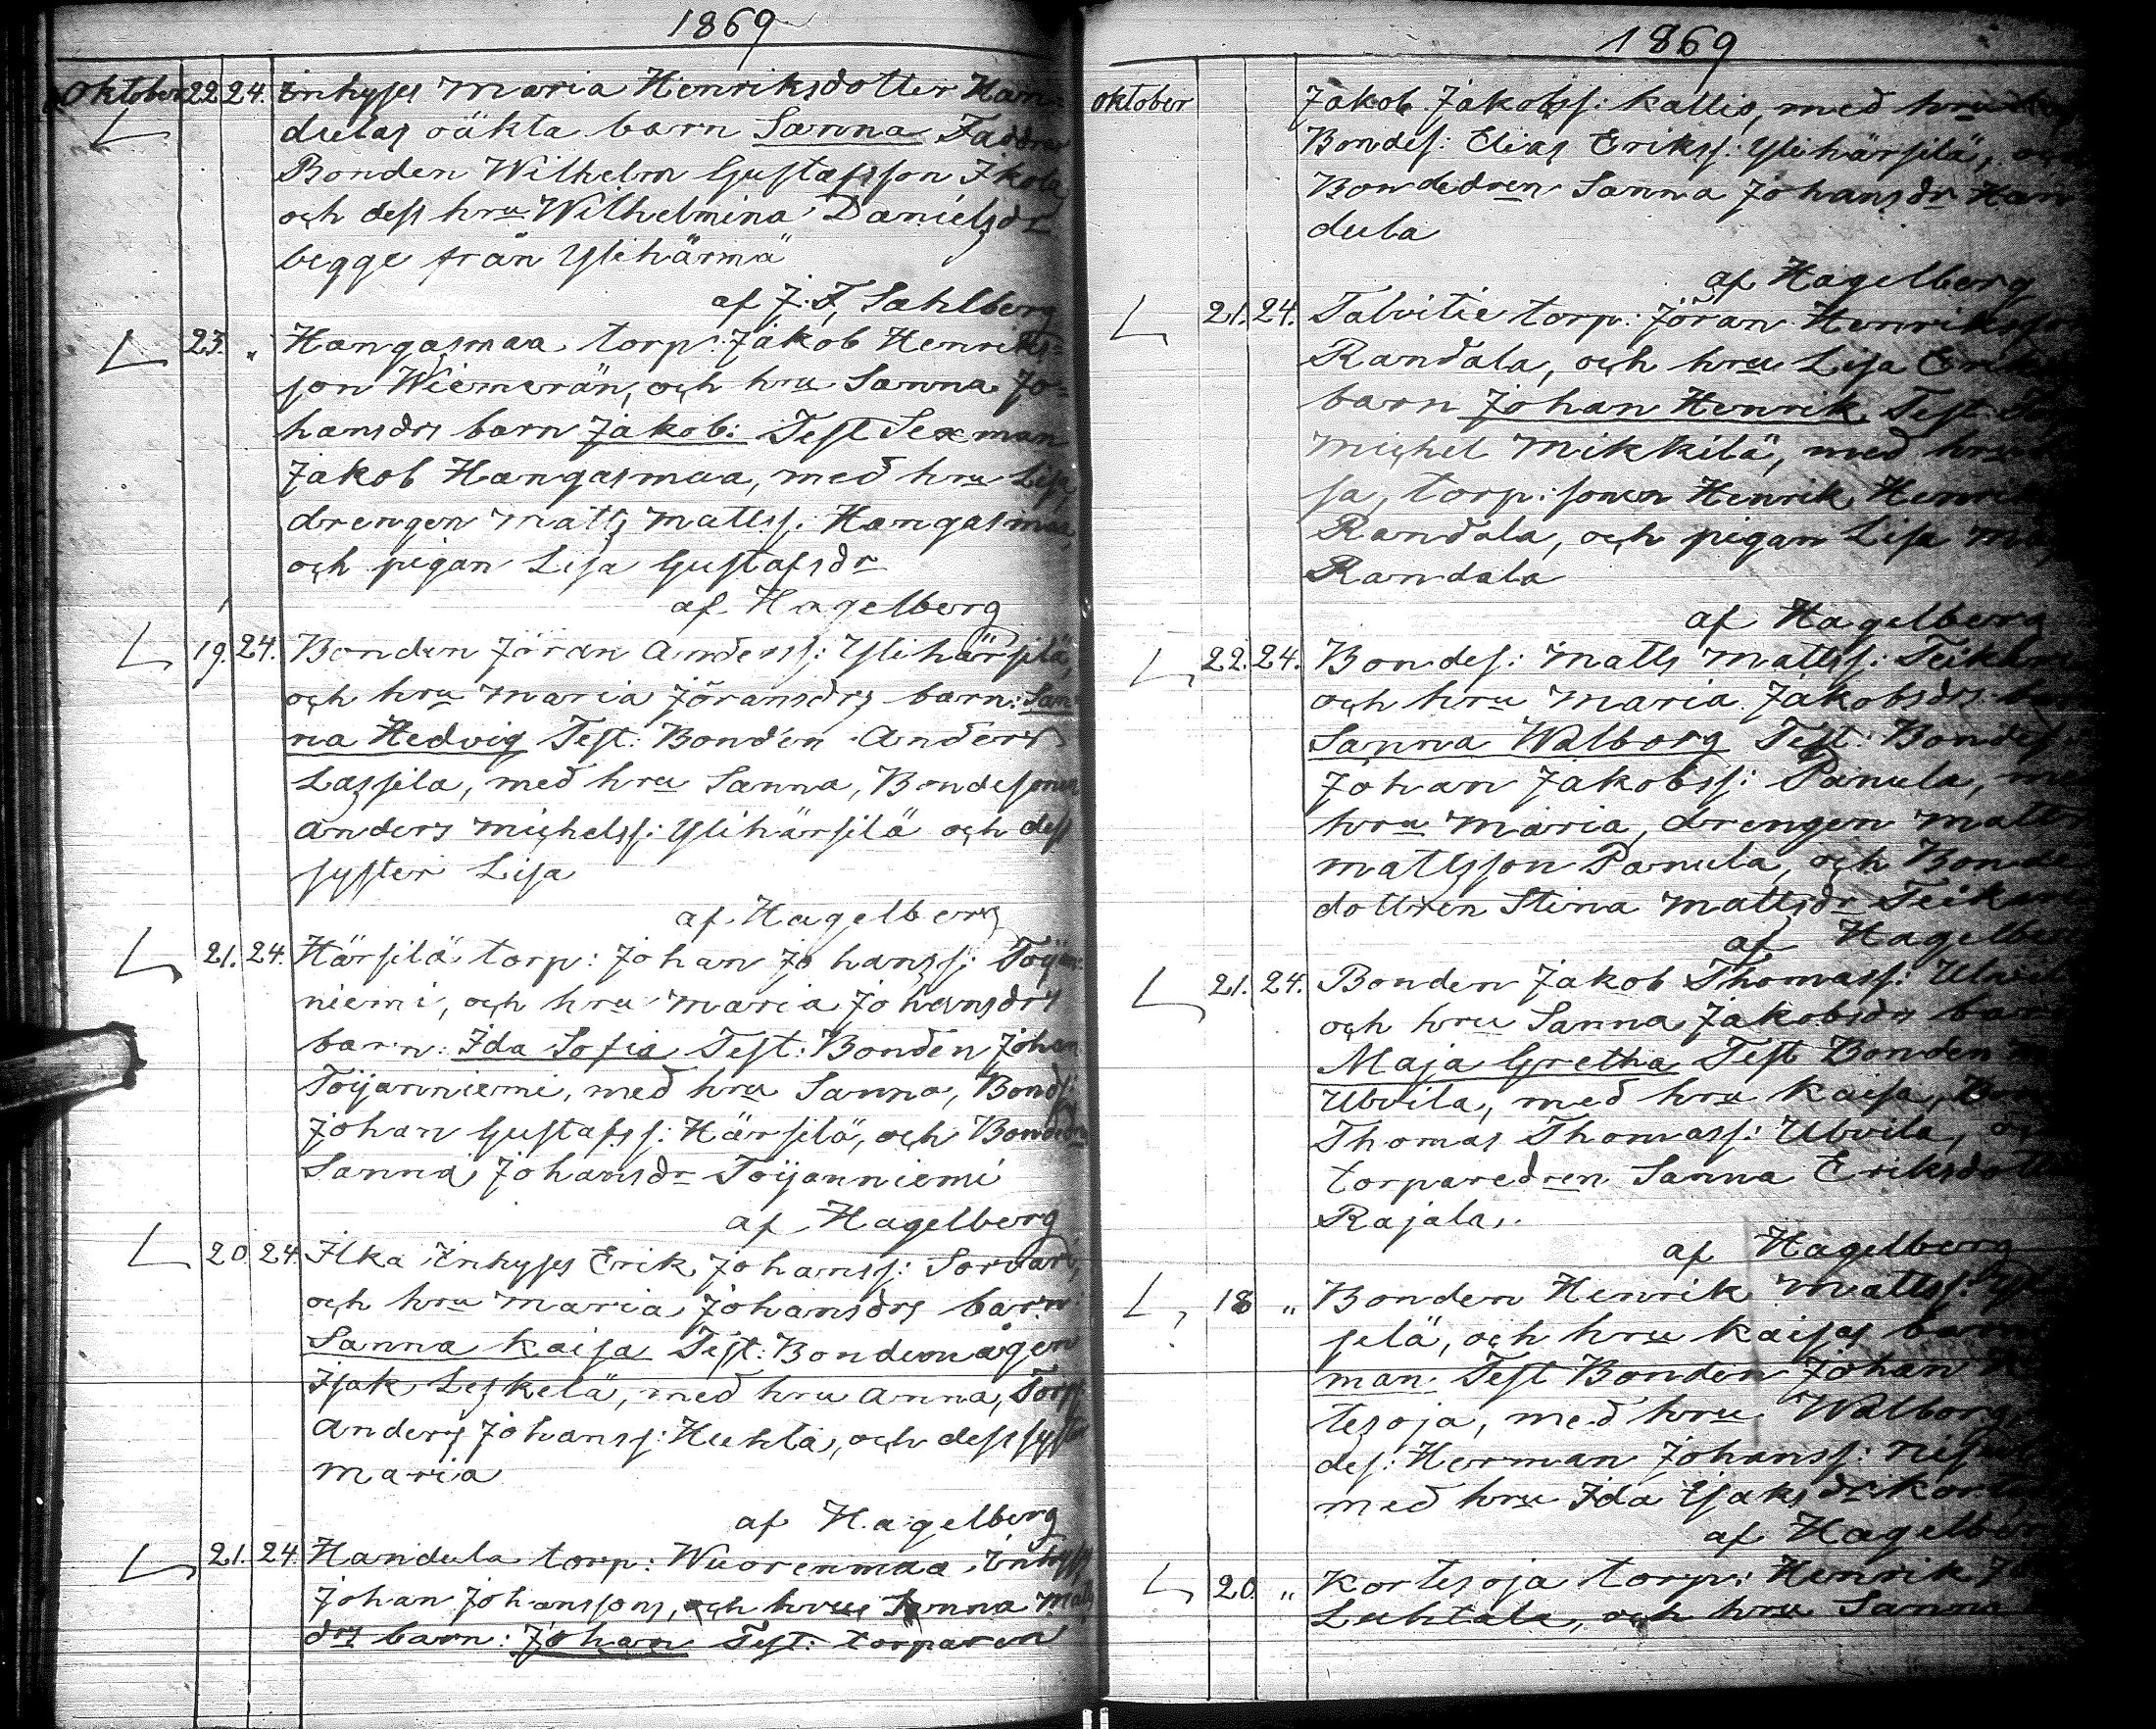 1869
Oktober 22 24. Inhyses Maria Henriksdotter Han=
dulas oäkta barn Sanna Faddrar
Bonden Wilhelm Gustafsson Ikola
och dess hru Wilhelmina Danielsdr
begge från Ylihärmä
af J. F. Sahlberg
23. " Hangasmaa torp: Jakob Henriks=
son Wiemerän, och hru Sanna Jo=
hansdrs barn Jakob: Test Sexman
Jakob Hangasmaa, med hru Lisa
drengen Matts Mattss: Hangasmaa,
och pigan Lisa Gustafsdr
af Hagelberg
19. 24. Bonden Jöran Anderss: Ylihärsilä,
och hru Maria Jöransdrs barn: San=
na Hedvig Test: Bonden Anders
Lassila, med hru Sanna, Bondesonen
Anders Michelss: Ylihärsilä och dess
syster Lisa
af Hagelberg
21. 24. Härsilä torp: Johan Johanss: Töijan=
niemi, och hru Maria Johansdrs
barn: Ida Sofia Test: Bonden Johan
Toijanniemi, med hru Sanna, Bonds:
Johan Gustafss: Härsilä, och Bondedr
Sanna Johansdr Toijanniemi
af Hagelberg
20. 24. Ilka Inhyses Erik Johanss: Sorvari,
och hru Maria Johansdrs barn:
Sanna Kaisa Test: Bondemågen
Isak Leskelä, med hru Anna, Torps:
Anders Johanss: Huhta, och dess syster
Maria
af Hagelberg
21. 24. Handula torp: Wuorenmaa Inhyses
Johan Johanssons, och hrus Sanna Matts
drs barn: Johan Test: torparen
1869
Oktober Jakob Jakobss: Kallio, med hru
Bondes: Elias Erikss: Ylihärsilä, och
Bondedren Sanna Johansdr Han
dula
af Hagelberg
21. 24. Talvitie torp: Jöran Henriksson
Randala, och hru Lisa Eriks
barn Johan Henrik Test
Michel Mikkilä, med hru
sa, torp: sonen Henrik Henriks
Randala, och pigan Lisa
Randala
af Hagelberg
22. 24. Bondes: Matts Mattss:
och hru Maria Jakobsdrs
Sanna Walborg Test: Bondes:
Johan Jakobss: Panula, med
hru Maria, drengen Matts
Mattsson Panula, och Bonde
dottren Stina Mattsdr
af Hagelberg
21. 24. Bonden Jakob Thomass: Ulvila
och hru Sanna Jakobsdrs barn
Maja Gretha Test Bonden
Ulvila, med hru Kaisa,
Thomas Thomass: Ulvila, och
torparedren Sanna Eriksdotter
Rajala.
af Hagelberg
18 " Bonden Henrik Mattss:
silä, och hru Kaisas barn
man: Test Bonden Johan
tesoja, med hru Walborg
des: Herman Johanss:
med hru Ida Isaksdr
af Hagelberg
20. " Kortesoja torp: Henrik
Luhtala, och hru Sanna